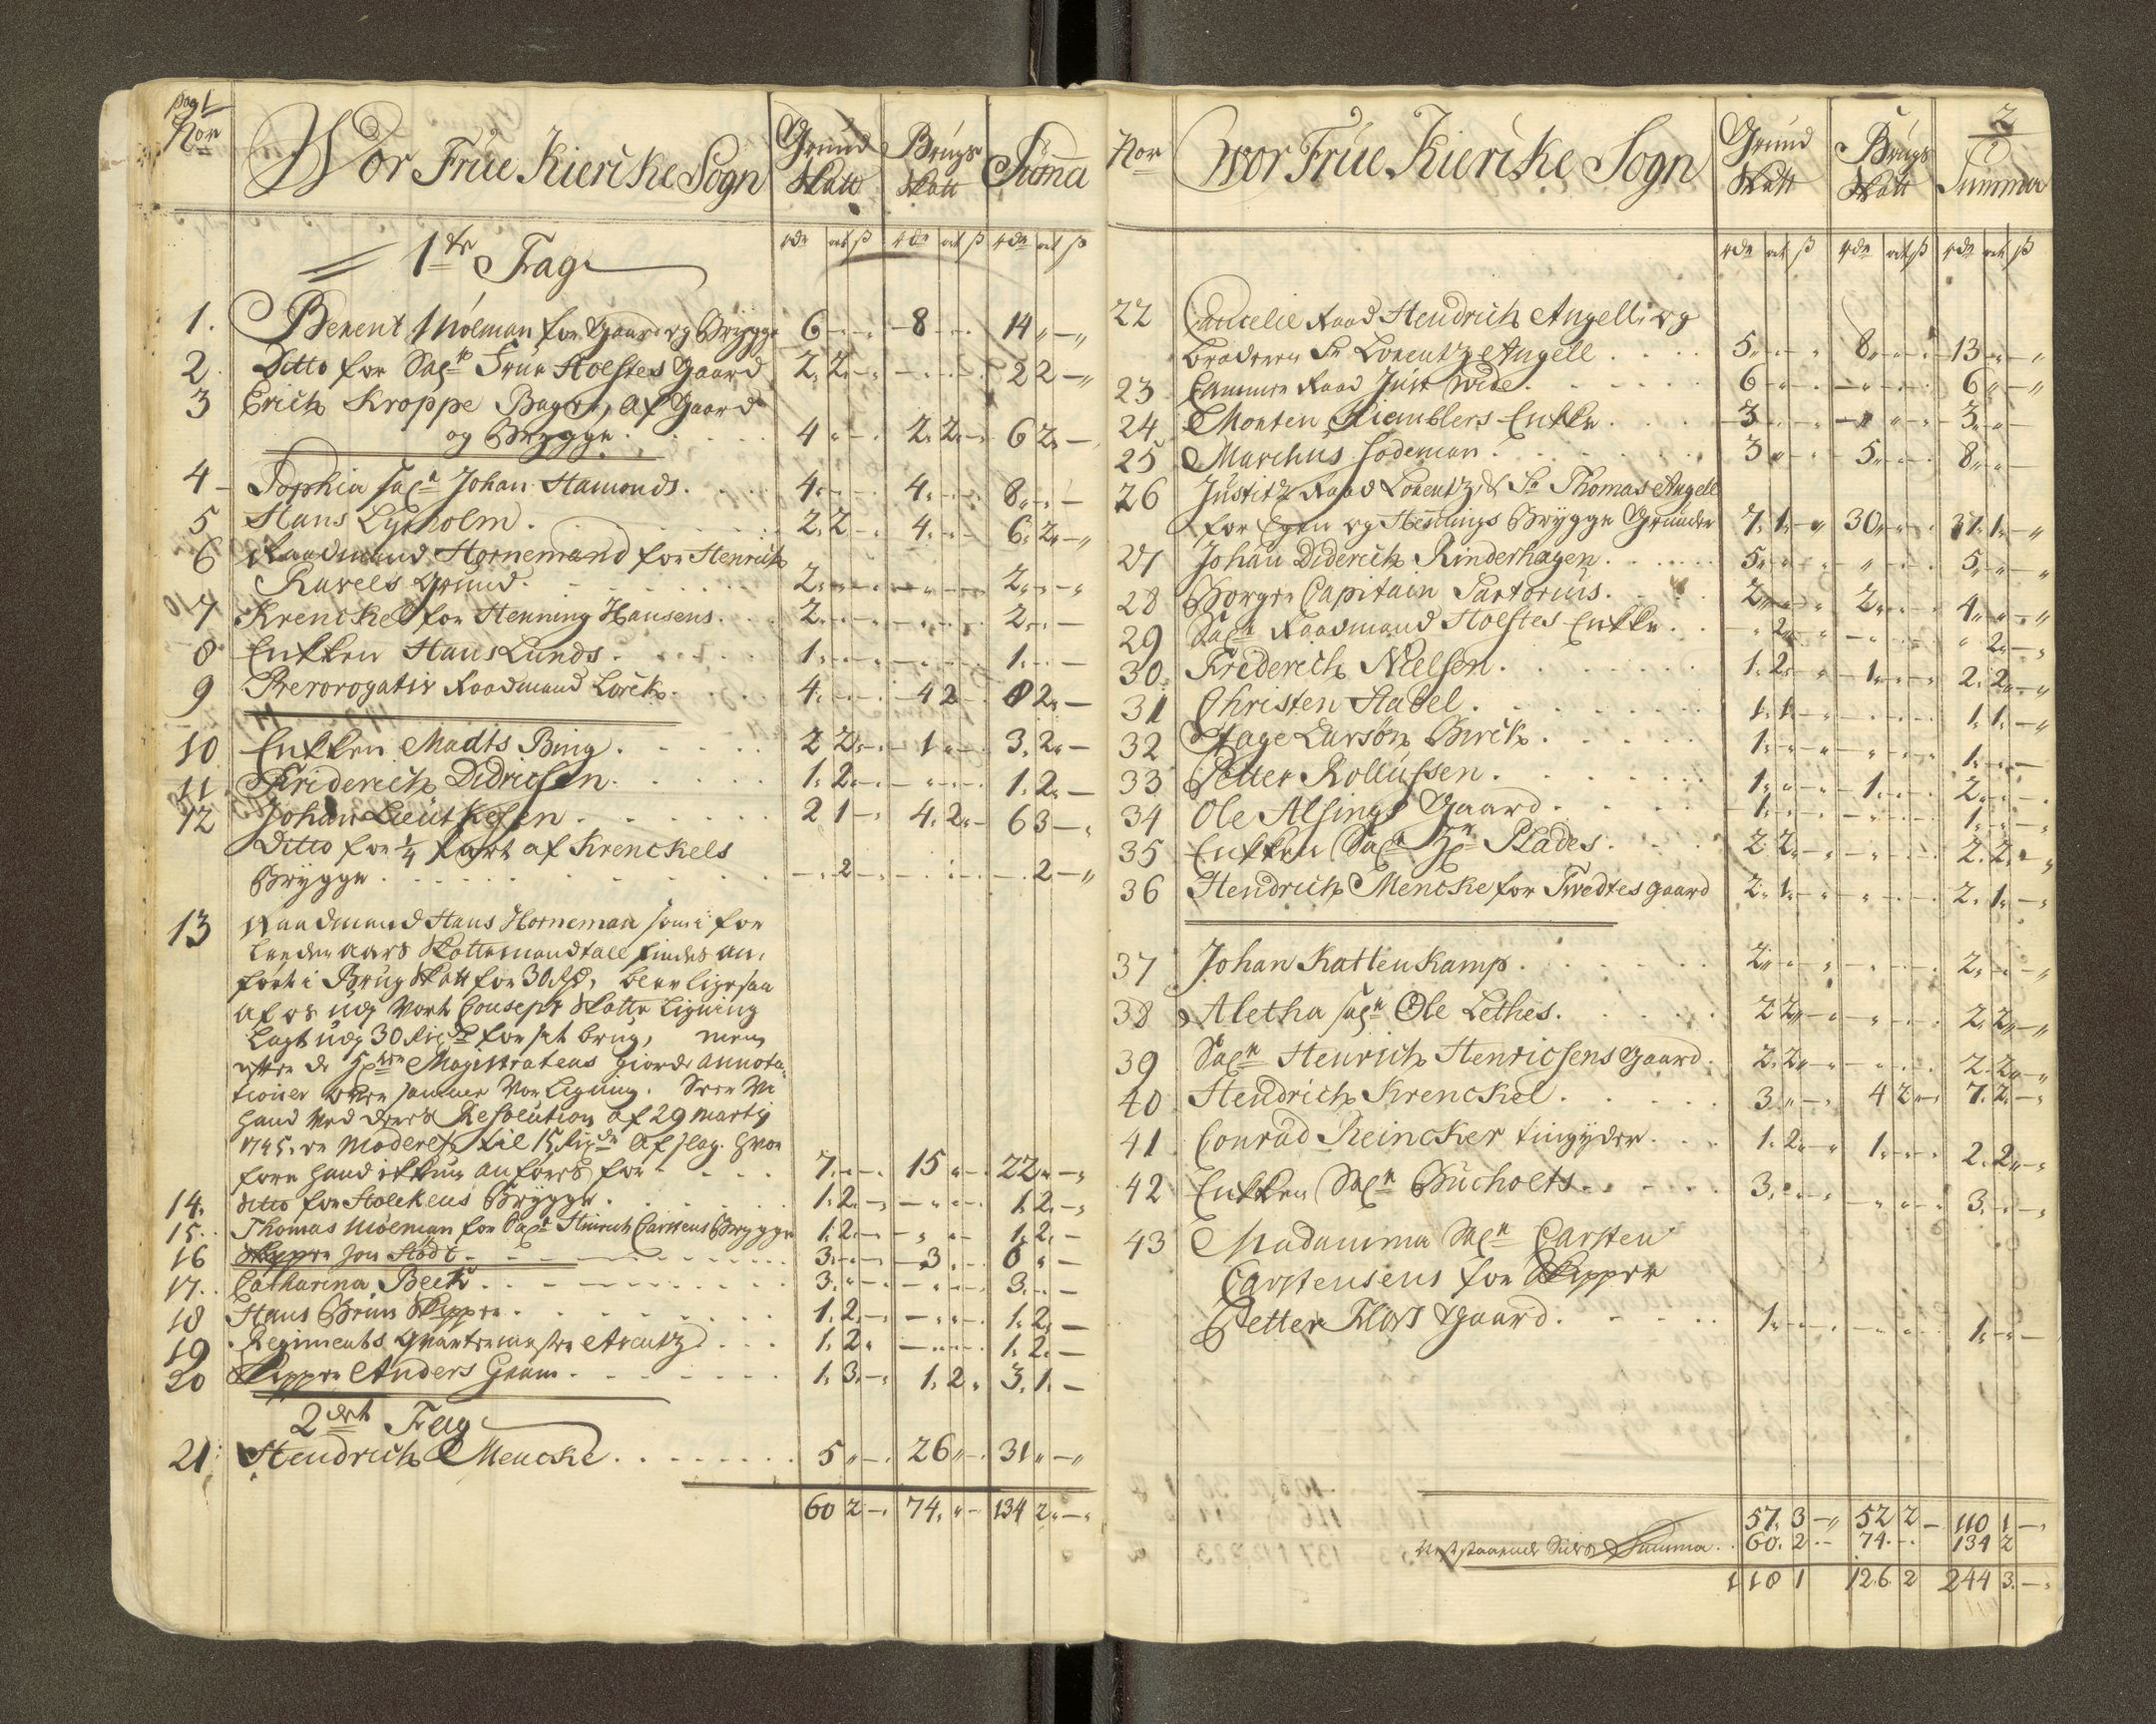 pag 1
Nor
Wor Frúe Kiericke Sogn
Grúnd Skatt
Brúgs Skatt
Suma
1te Frag
rdr ort ß rdr ort ß rdr ort ß
1. Berent Mölman for Gaard og Brÿgge 6 - 8 - 14 -
2. Ditto for Sal. Frue Holstes Gaard 2. 2 - - 2 2 -
3 Erich Kroppe Bager, af Gaard
og Brÿgge 4 - 2. 2 - 6 2 -
4 Sophia sal. Johan Hamonds 4 - 4 - 8 -
5 Hans Lÿsholm 2. 2 - 4 - 6. 2 -
6 Raadmand Hornemand for Henrich
Ravels Grúnd 2 - - 2 -
7 Krenckel for Henning Hansens 2 - - 2 -
8 Enkken Hans Lunds 1 - - 1 -
9 Prerorogativ Raadmand Lorck 4 - 4 2 8 2 -
10 Enkken Madts Bing 2 2 - 1 - 3. 2 -
11. Friderich Didricsen 1. 2 - - 1. 2 -
12 Johan Lieutkesen 2 1 - 4. 2 - 6 3 -
Ditto for 1/4 part af Krenckels
Brÿgge - 2 - - - 2 -
13 Raadmand Hans Horneman som i for
Leeden aars Skattemandtall findes an,
fört i Brug Skatt for 30 rd, blev ligesaa
af os udj Vort Consept Skatte Ligning
Lagt udj 30 Rigsdr for sit brug, men
efter de Magistratens giorde annota,
tioner over samme Vor Ligning. Blev
hand Ved deres Resolution af 29 Martÿ
1745. Moderert til 15 rigsdr af slag. hvor
fore hand ikkun anföres for 7 - 15 - 22 -
14. ditto for Stolckens Brÿgge 1. 2 - - 1. 2 -
15. Thomas Möeman for Sal. Hinrich Carstens Brÿgge 1. 2 - - 1. 2 -
16 Skipper Jon Hödt 3 - 3 - 6 -
17. Catharina Beck 3 - - 3 -
18 Hans Brun Skipper 1. 2 - - 1. 2 -
19 Regiments Qvarteermester Arentz 1. 2 - - 1. 2 -
20 Skipper Anders Gram 1. 3 - 1. 2 3. 1 -
2det Frag
21 Hendrich Mencke 5 - 26 - 31 -
60 2 - 74 - 134 2 -
2
Nor
Wor Frúe Kiericke Sogn
Grúnd Skatt
Brúgs Skatt
Summa
rdr ort ß rdr ort ß rdr ort ß
22 Cancelie Raad Hendrich Angell; og
broderen Sr Lorentz Angell 5 - 8 - 13 -
23 Cammer Raad Just Wide 6 - - 6 -
24 Morten Kiemblers Enkke 3 - - 3 -
25 Marchus Sodeman 3 - 5 - 8 -
26 Justitz Raad Lorentz, & Sr Thomas Angell
for Egen og Hennings Brÿgge Grúnder 7. 1 - 30 - 37. 1 -
27 Johan Diderich Rinderhagen 5 - - 5 -
28 Borger Capitain Sartorius 2 - 2 - 4 -
29 Sal. Raadmand Holstes Enkke - 2 - - - 2 -
30. Friderich Nielsen 1. 2 - 1 - 2. 2 -
31 Christen Stabel 1. 1 - - 1. 1 -
32 Hage Larsön Birck 1 - - 1 -
33 Petter Rollufsen 1 - 1 - 2 -
34 Ole Alsings Gaard 1 - - 1 -
35 Enkken Sal. Hr Plades 2 2 - - 2. 2 -
36 Hendrich Mencke for Tvedtes gaard 2. 1 - - 2. 1 -
37 Johan Kattenkamp 2 - - 2 -
38 Aletha sal. Ole Lethes 2 2 - - 2. 2 -
39 Sal. Henrich Henricsens Gaard 2. 2 - - 2. 2 -
40 Hendrich Krenckel 3 - 4 2 - 7. 2 -
41 Conrad Reincker tingÿder 1. 2 - 1 - 2. 2 -
42 Enkken Sal. Bucholts 3 - - 3 -
43 Madamma Sal. Carsten
Carstensens for Skipper
Petter Floers Gaard 1 - - 1 -
57. 3 - 52 2 - 110 1 -
Modstaaende Sides Summa 60. 2 - 74 - 134 2
118 1 126 2 244 3 -